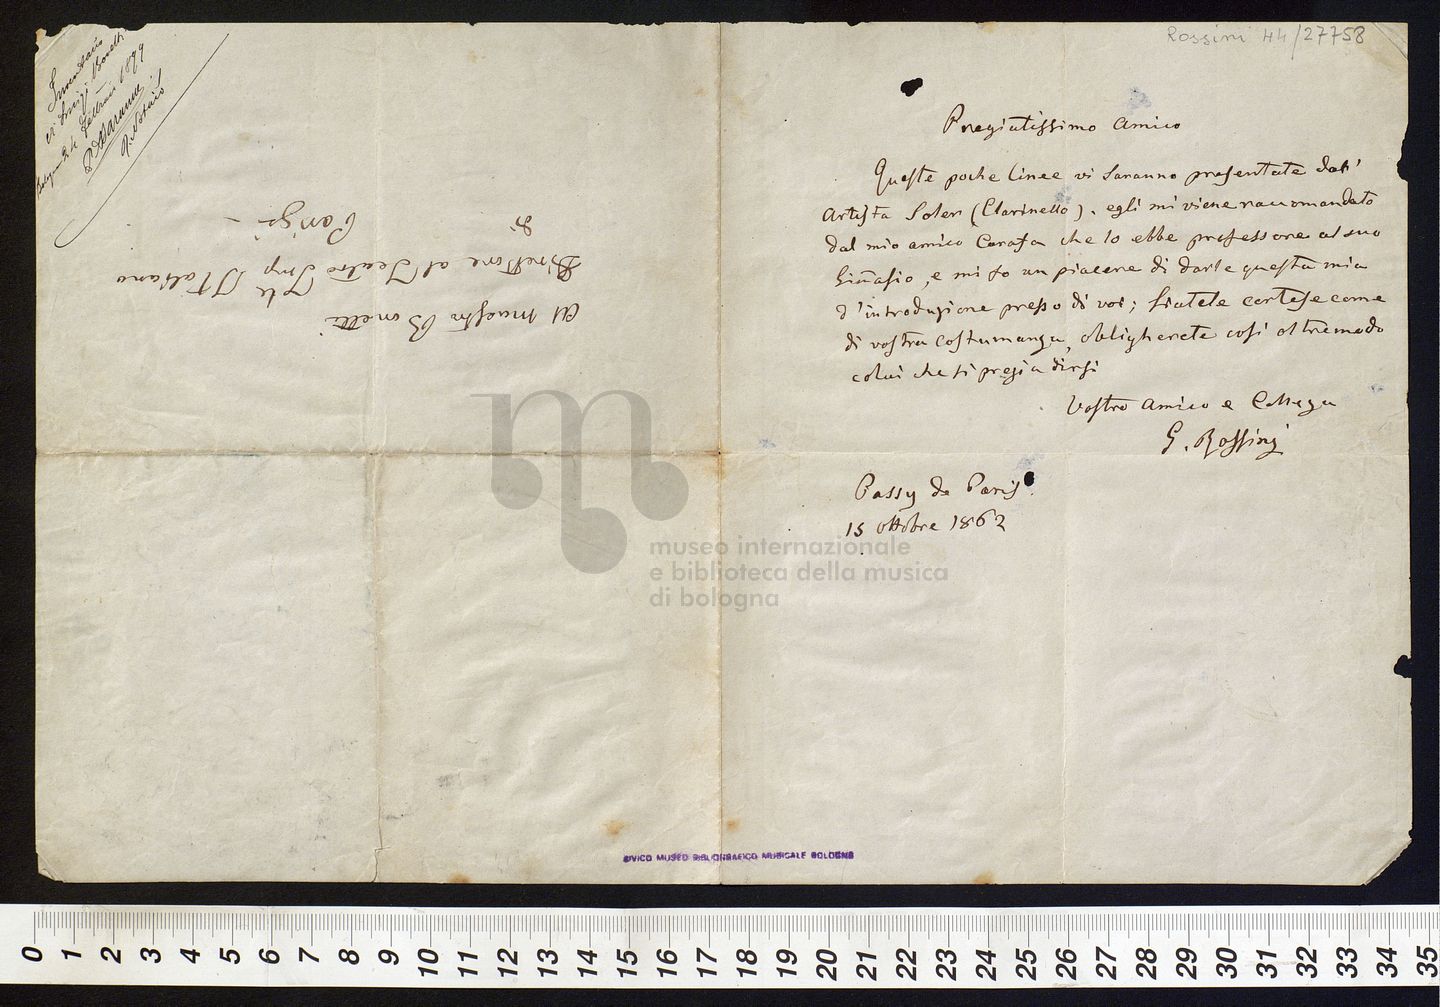 Rossini 44/27758
Pregiatissimo Amico
Queste poche linee vi saranno presentate dall'
Artista Soler (Clarinetto). egli mi viene raccomandato
dal mio amico Carafa che lo ebbe professore al suo
Giñasio, e mi fo un piacere di darle questa mia
d'introduzione presso di voi; siatele cortese come
di vostra costumanza, obligherete cosi oltremodo
colui che si pregia dirsi
Vostro Amico e Collega
G. Rossini
Passy de Paris.
15 Ottobre 1862
Inventario
Luigi Bonetti
Bologna 24 Febbraio 1879
R. Notaio
Al maestro Bonetti
Direttore al Teatro Imp. Italiano
di
Parigi
museo internazionale
e biblioteca della musica
di bologna
CIVICO MUSEO BIBLIOGRAFICO MUSICALE BOLOGNA
0 1 2 3 4 5 6 7 8 9 10 11 12 13 14 15 16 17 18 19 20 21 22 23 24 25 26 27 28 29 30 31 32 33 34 35